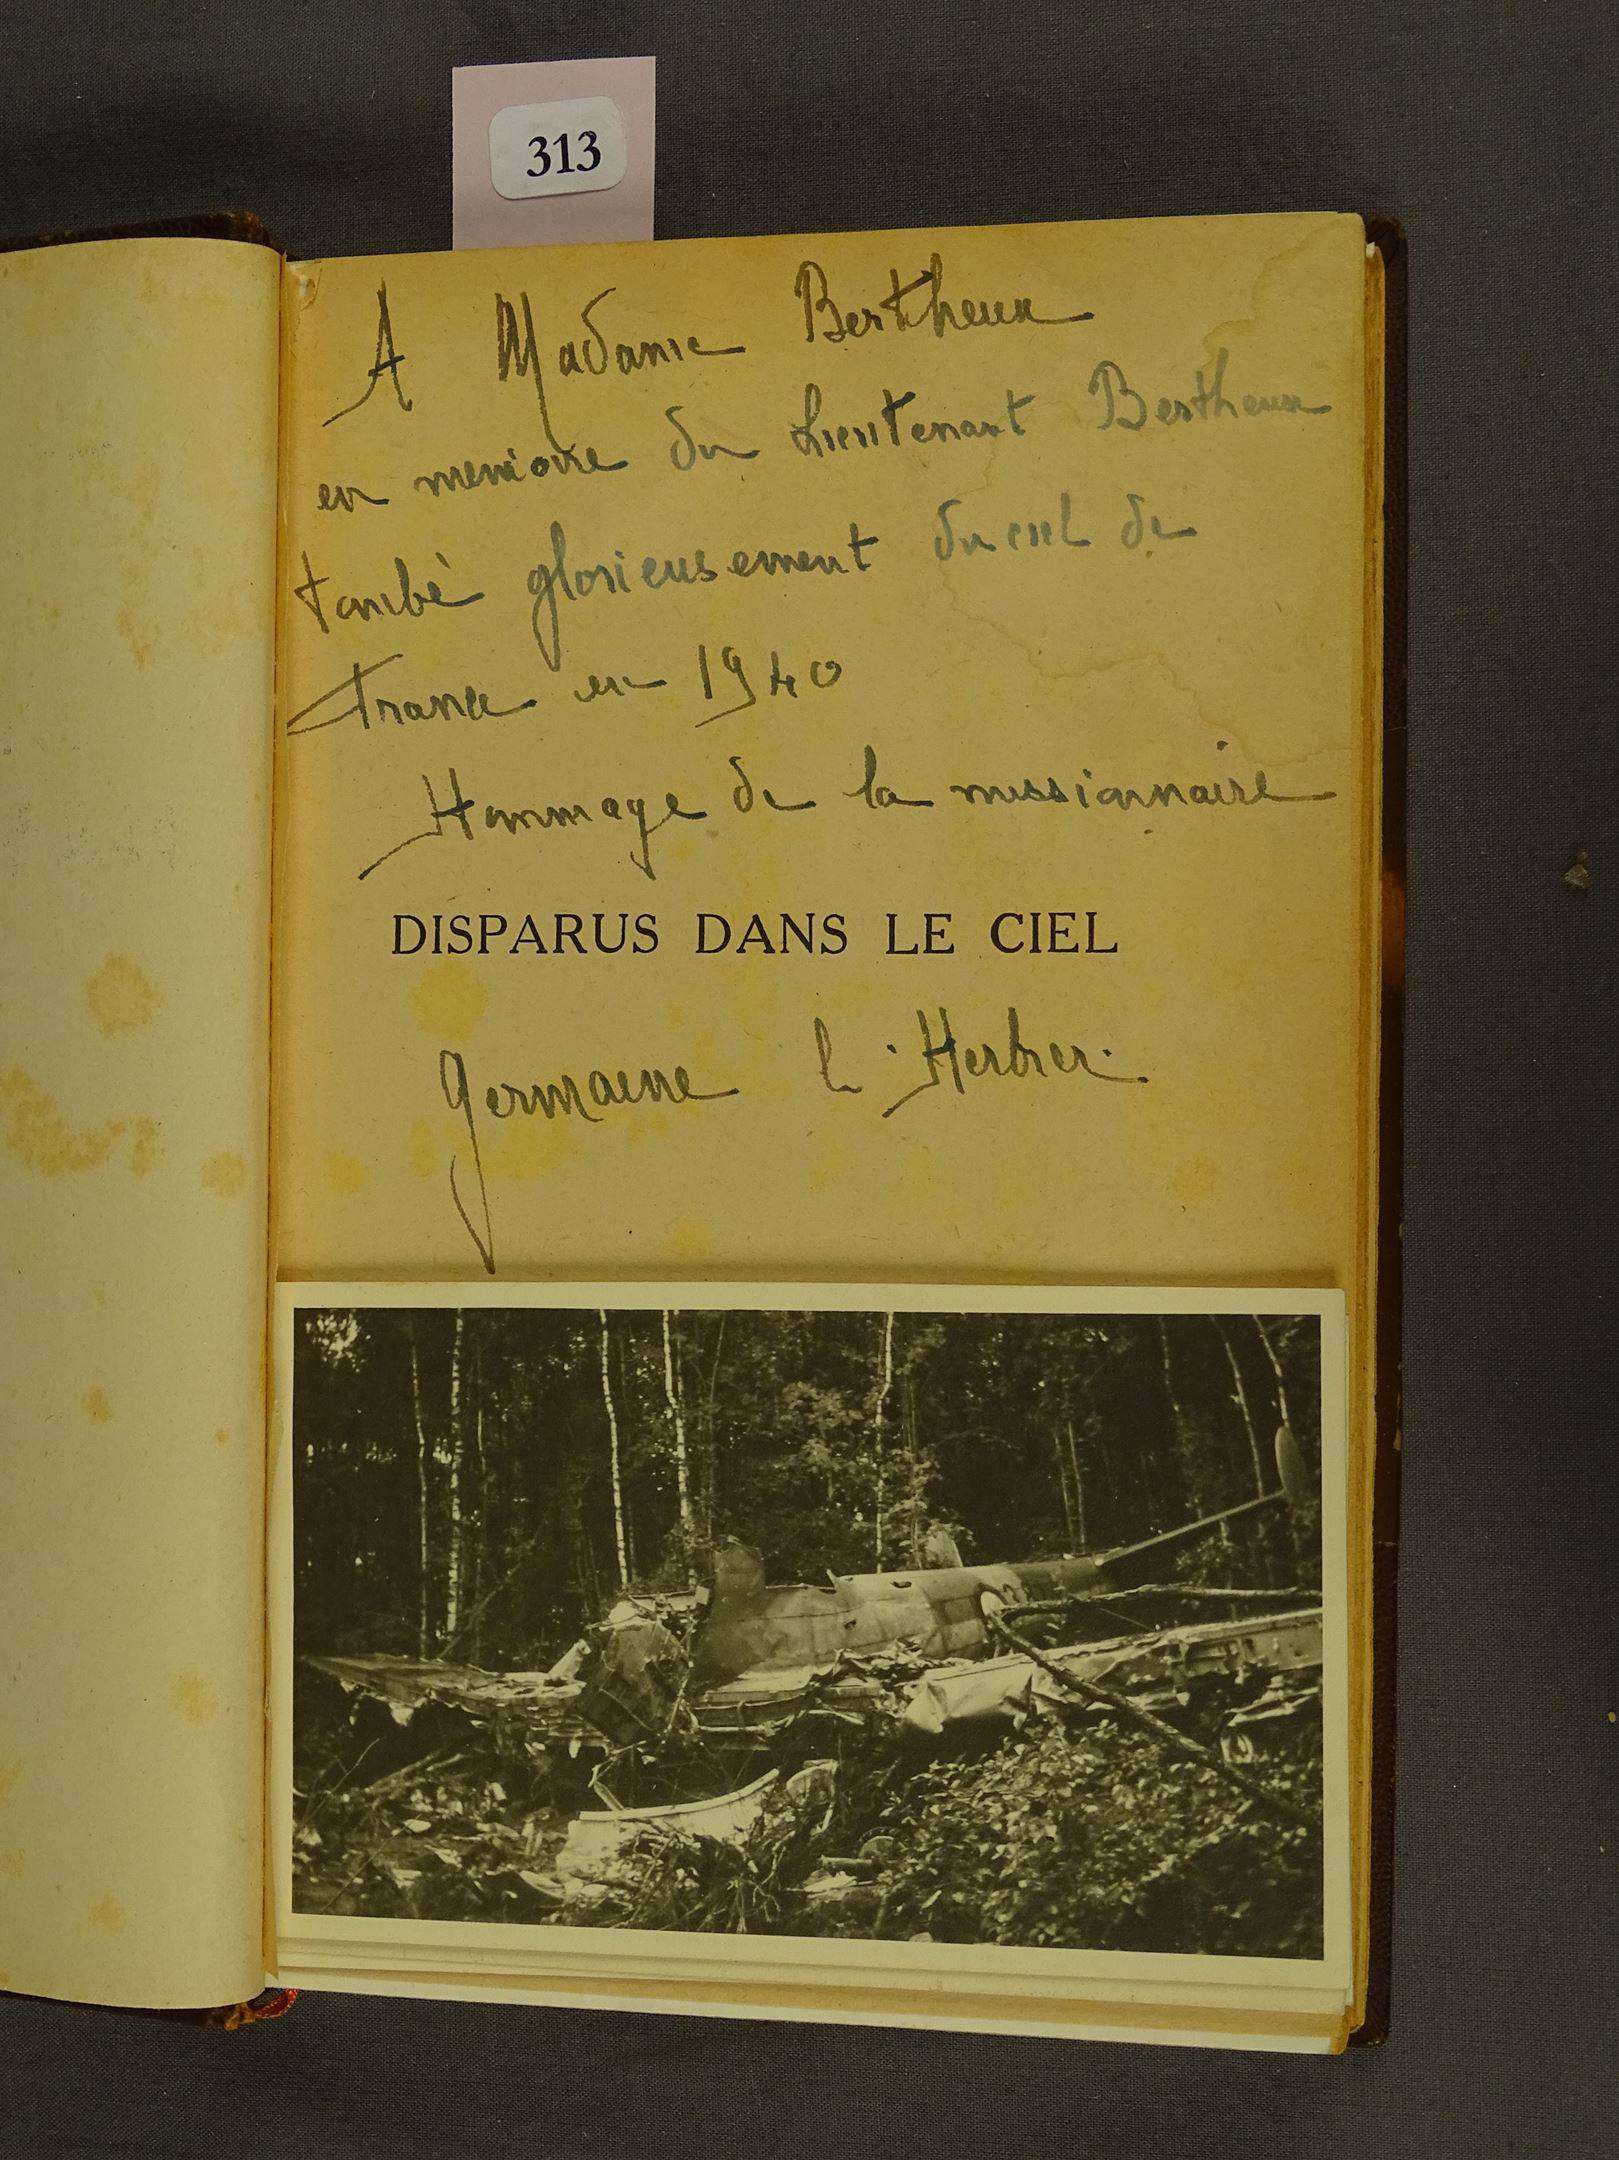 313
A Madame Bertheux
en memoire du Lieutenant Bertheux
tombé glorieusement du ciel de
France en 1940
Hommage de la missionnaire
DISPARUS DANS LE CIEL
Germaine L'Herbier